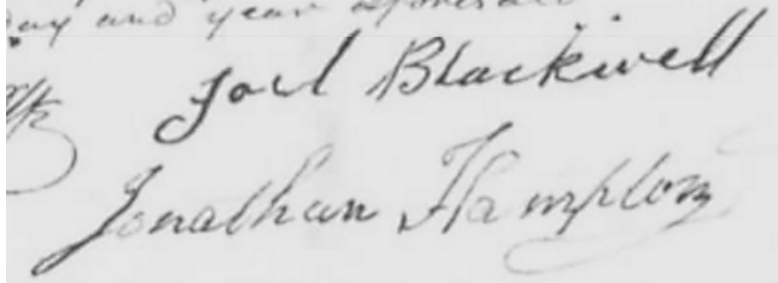 day and year aforesaid
Joel Blackwell
Jonathan Hampton